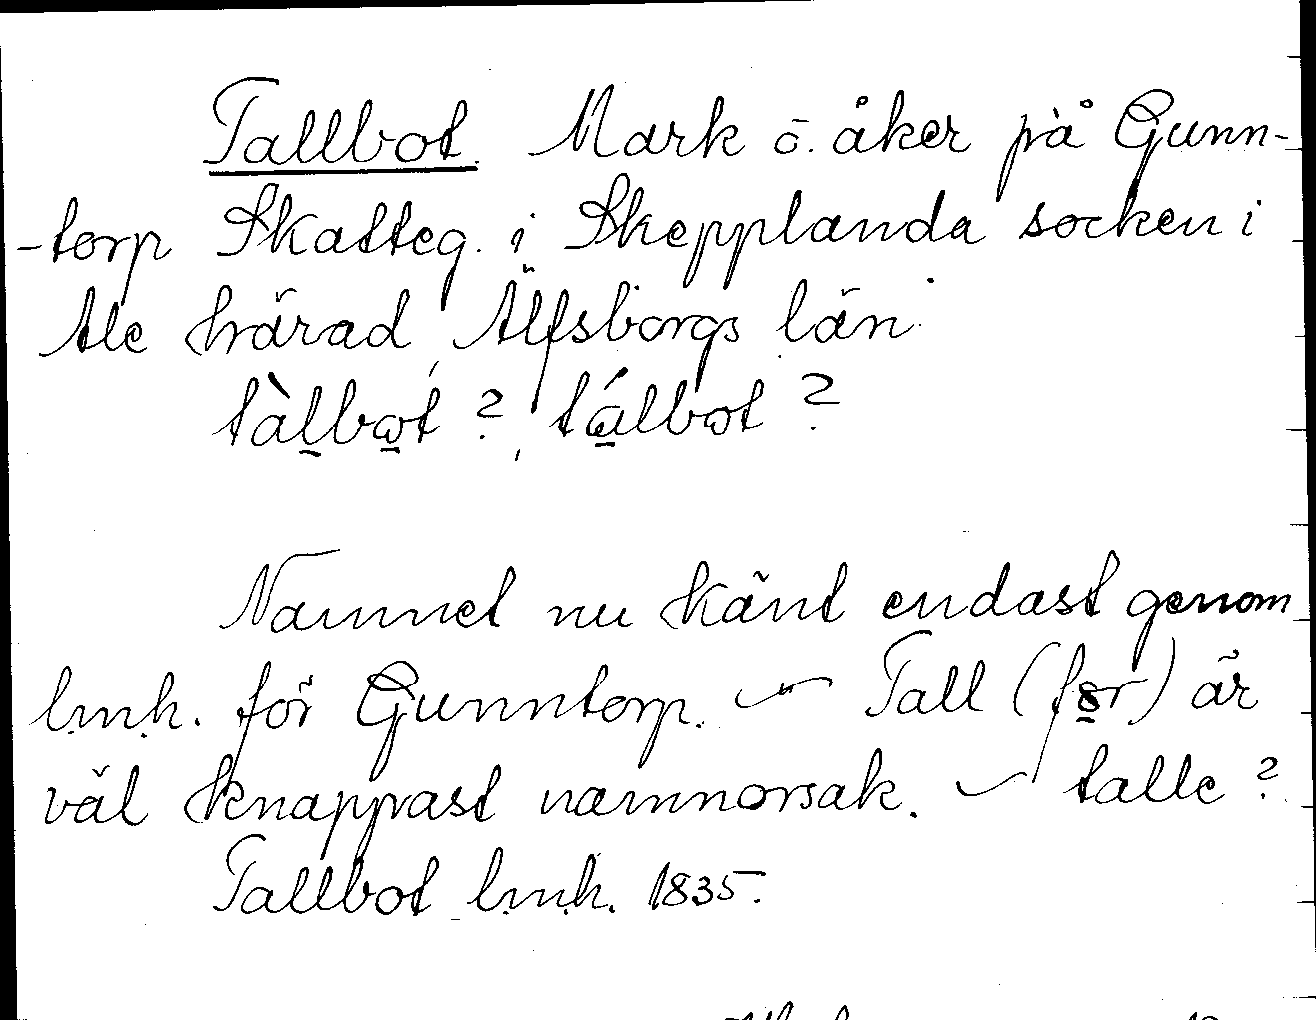 Tallbot. Mark o. åker på Gunn-
-torp Skatteg. i Skepplanda socken i
Ale härad, Älfsborgs län.
tàlbot ?, tálbot ?
Namnet nu känt endast genom
lmh. för Gunntorp. — Tall (för) är
väl knappast namnorsak. — talle ?
Tallbot lmh. 1835.